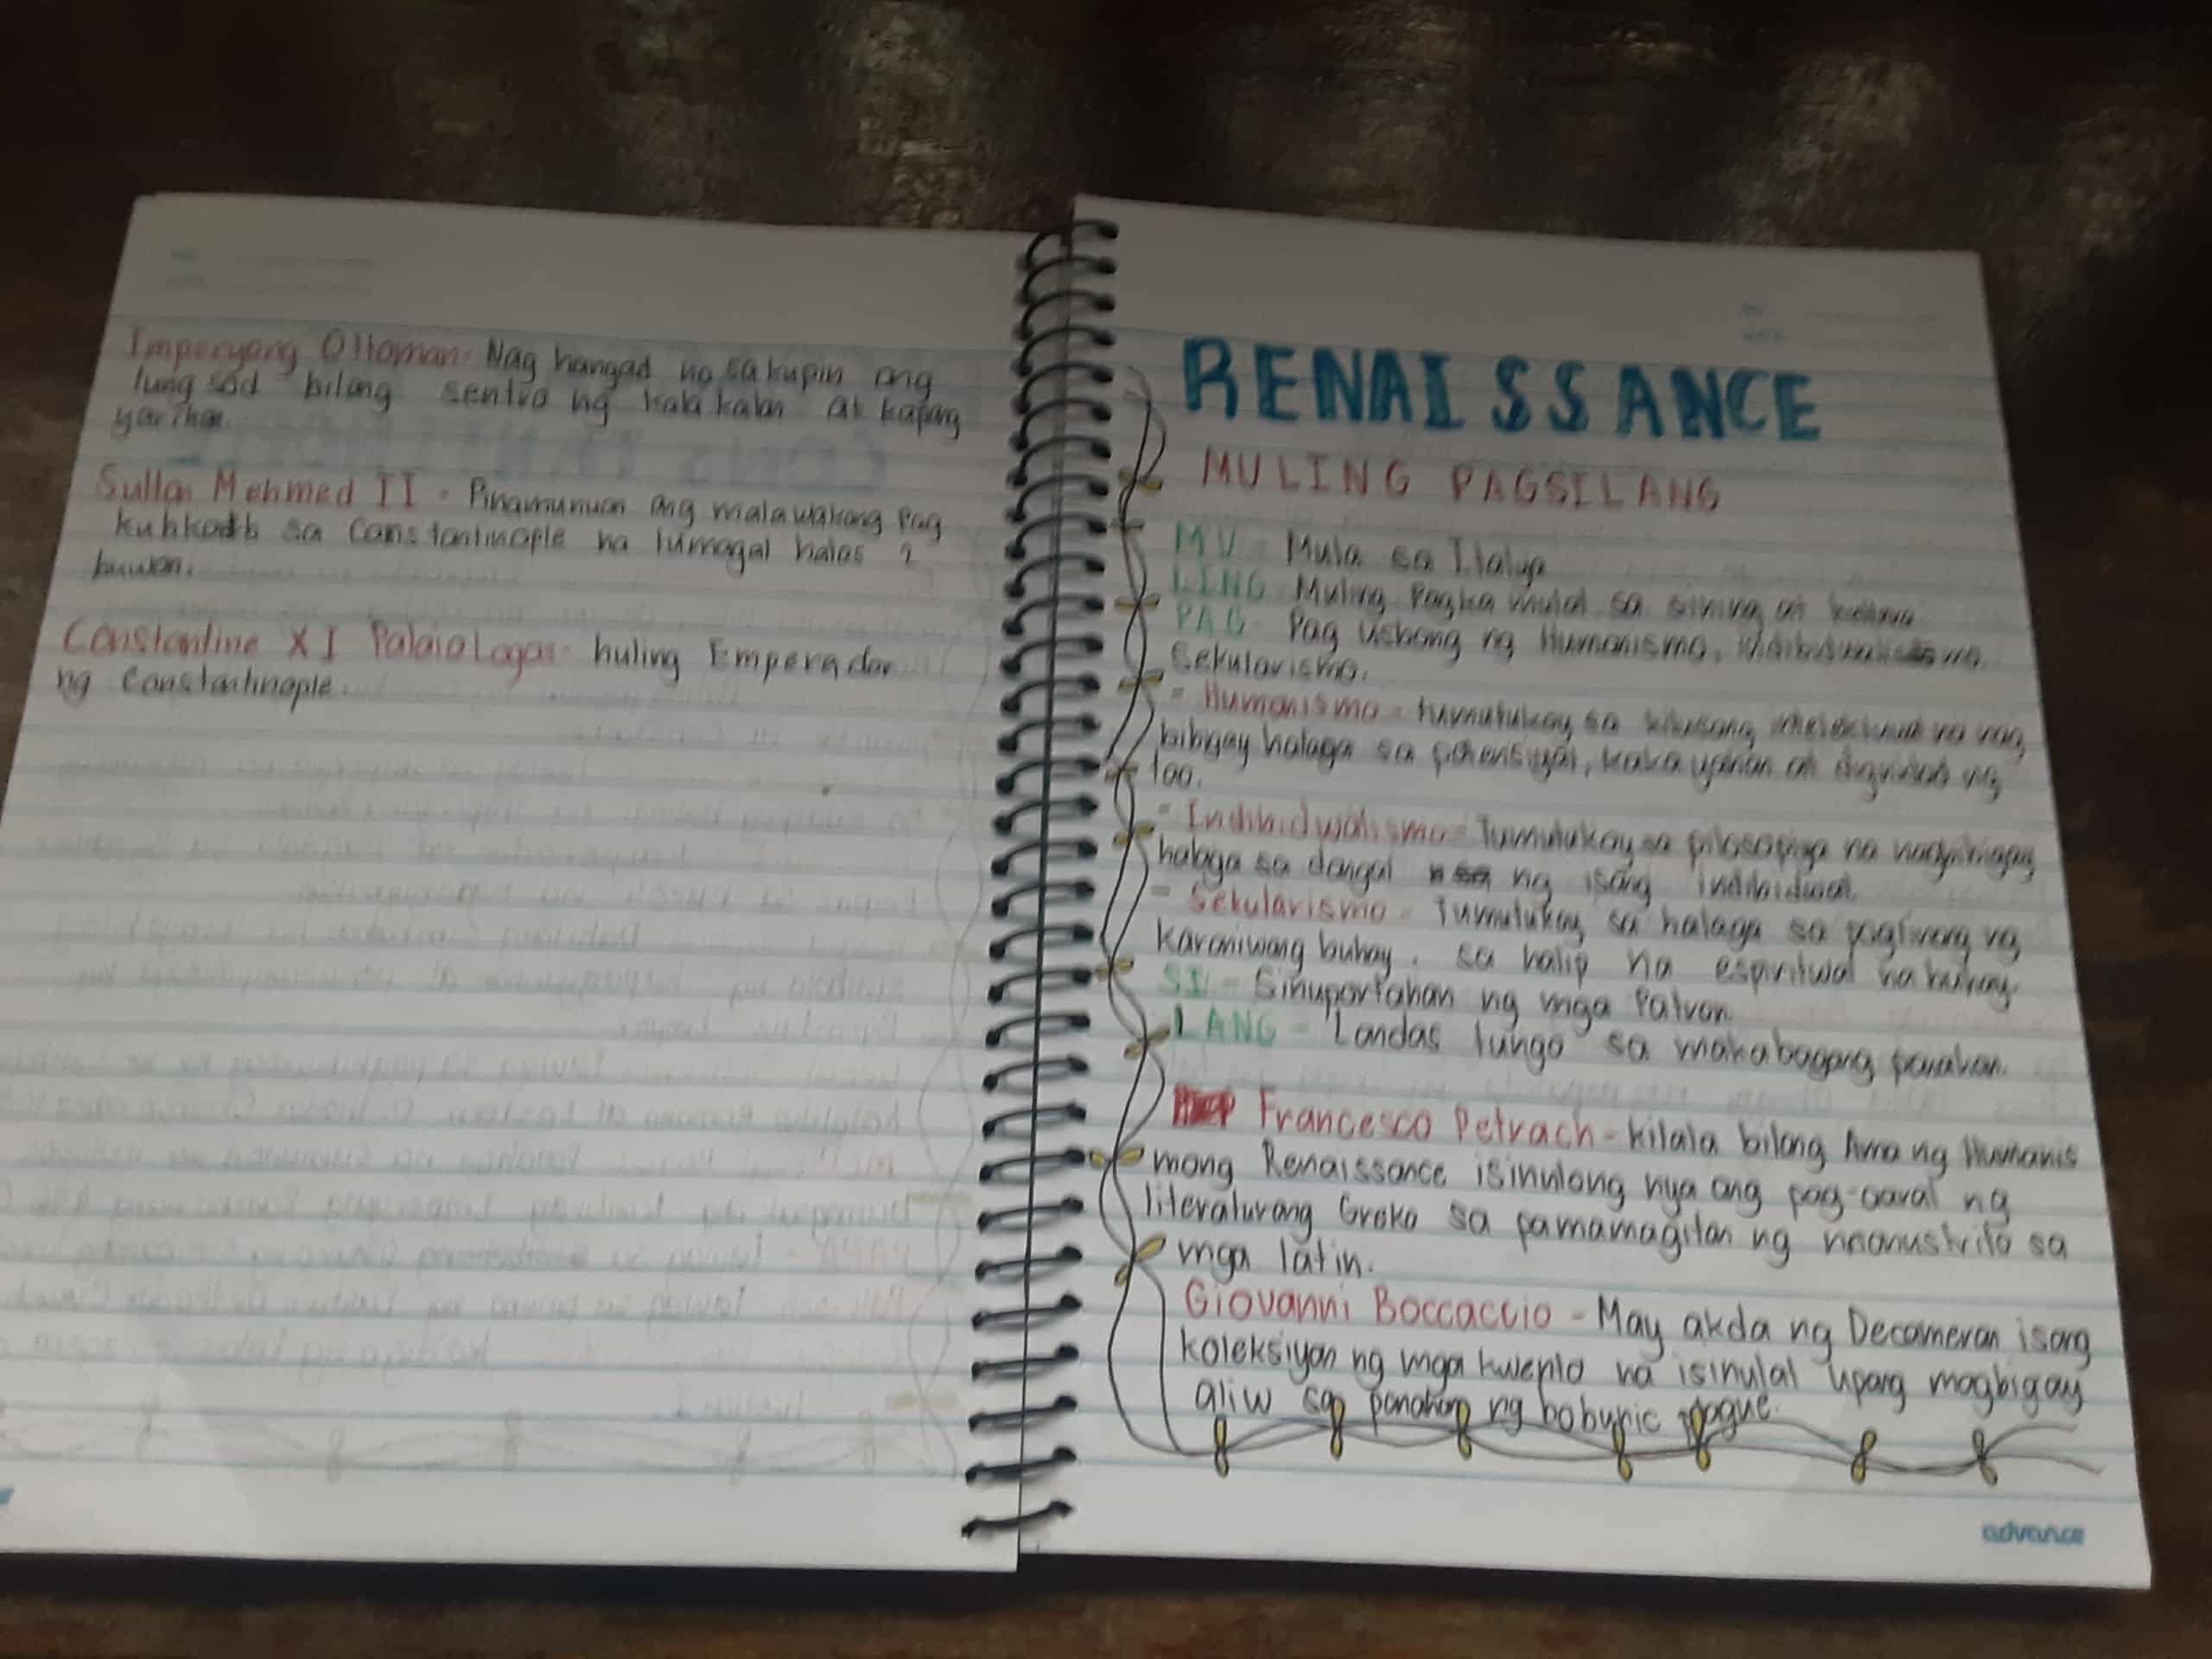 Imperyong Ottoman- Nag hangad na sakupin ang
lung sod bilang sentro ng kala kalan at kapang
yarihan.
Sultan Mehmed II - Pinamunuan ang malawakang Pag
kubkob sa Constantinople na tumagal halos 2
buwan.
Constantine XI Palaiologos- huling Emperador
ng Constantinople.
RENAISSANCE
MULING PAGSILANG
MU - Mula sa Italya
LING - Muling Pagka mulat sa sining at
PAG - Pag usbong ng Humanismo,
Sekularismo.
- Humanismo - tumutukoy sa kilusang na nag
bibigay halaga sa potensiyal, kaka yahan at dignidad ng
tao.
- Indibidwalismo - Tumutukoy sa pilosopiya na nagbibigay
halaga sa dangal ng isang indibidwal.
- Sekularismo - Tumutukoy sa halaga sa ng
karaniwang buhay, sa halip na espiritwal na buhay
SI - Sinuportahan ng mga Patron.
LANG - Landas tungo sa makabagong panahon.
Francesco Petrach - kilala bilang Ama ng Humanis
mong Renaissance isinulong nya ang pag-aaral ng
literaturang Greko sa pamamagitan ng manustrito sa
mga latin.
Giovanni Boccaccio - May akda ng Decameron isang
koleksiyon ng mga kwento na isinulat upang magbigay
aliw sa panahon ng bobunic plague.
advance